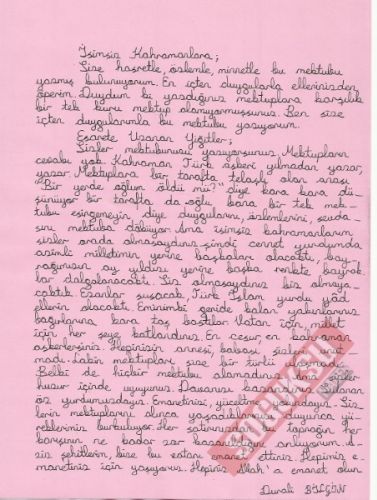 İsimsiz Kahramanlara;
Size hasretle, özlemle, minnetle bu mektubu
yazmış bulunuyorum. En içten duygularla ellerinizden
öperim. Duydum ki yazdığınız mektuplara karşılık
bir tek kuru mektup alamıyormuşsunuz. Ben size
içten duygularımla bu mektubu yazıyorum.
Esarete Uzanan Yiğitler;
Sizler mektubunuzu yazıyorsunuz. Mektupların
cevabı yok. Kahraman Türk askeri yılmadan yazar,
yazar. Mektuplara bir tarafta telaşlı olan anası
"Bir yerde oğlum öldü mü?" diye kara kara dü-
şünüyor bir tarafta da oğlu bana bir tek mek-
tubu esirgemeyin, diye duygularını, özlemlerini, sevda-
sını mektuba döküyor. Ama isimsiz kahramanlarım
sizler orada olmasaydınız şimdi cennet yurdumda
asil milletimin yerine başkaları olacaktı, bay-
rağımızın ay yıldızı yerine başka renkte bayrak-
lar dalgalanacaktı. Siz olmasaydınız biz olmaya-
caktık. Ezanlar susacak, Türk İslam yurdu yad
ellerin olacaktı. Eminim geride kalan yakınlarınız
bağırlarına kara taş bastılar. Vatan için, millet
için her şeye katlandınız. En cesur, en kahraman
askerlersiniz. Hepinizin annesi, babası, sizlere
madı. Lakin mektupları, size bir türlü
Belki de hiçbir mektubu alamadınız.
huzur içinde uyuyunuz. Davanızı
öz yurdunuzdayız. Emanetinizi, yüceltme Siz-
lerin mektuplarını alınca yaşadıklarınızı duyunca yü-
reklerimiz burkuluyor. Her satırınızda bu toprağın her
karışının ne kadar zor kazanıldığını anlıyorum. A-
ziz şehitlerim, bize bu vatanı emanet ettiniz. Hepimiz e-
manetiniz için yaşıyoruz. Hepiniz Allah'a emanet olun
Durali